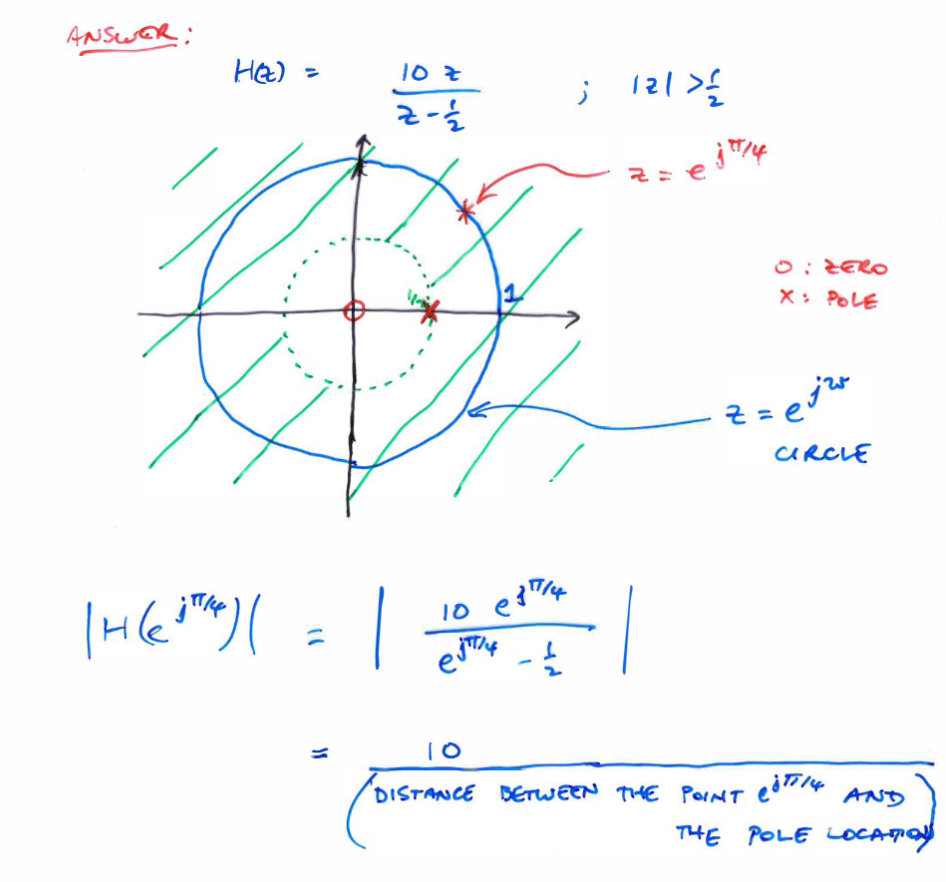 ANSWER:
H(z) = 10 z / (z - 1/2) ; |z| > 1/2
z = e^{jπ/4}
O : ZERO
X : POLE
1/2
1
z = e^{jω}
CIRCLE
|H(e^{jπ/4})| = | 10 e^{jπ/4} / (e^{jπ/4} - 1/2) |
= 10
(DISTANCE BETWEEN THE POINT e^{jπ/4} AND
THE POLE LOCATION)